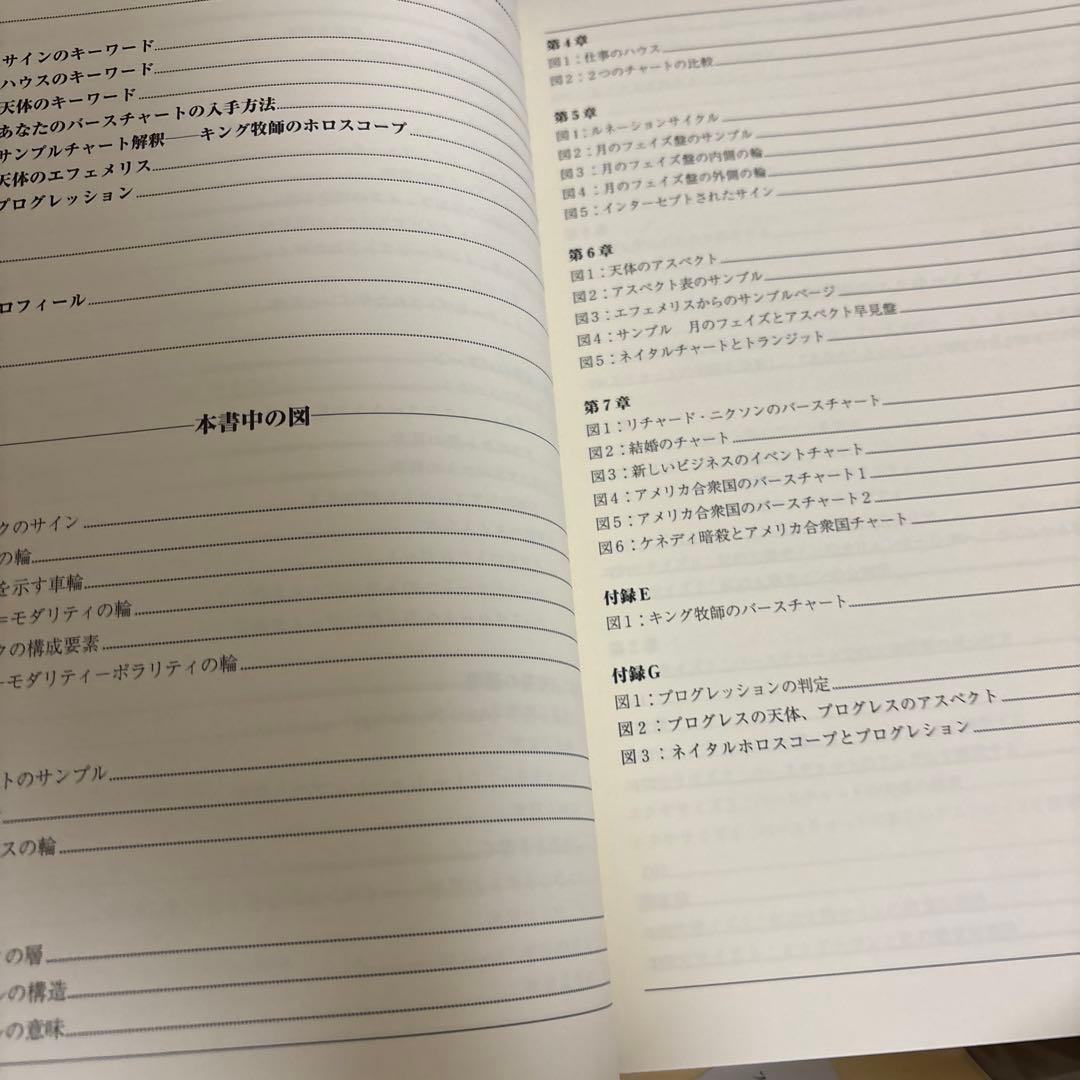 サインのキーワード
ハウスのキーワード
天体のキーワード
あなたのバースチャートの入手方法
サンプルチャート解釈――キング牧師のホロスコープ
天体のエフェメリス
プログレッション
ロフィール
本書中の図
クのサイン
の輪
を示す車輪
=モダリティの輪
クの構成要素
ーモダリティーポラリティの輪
トのサンプル
スの輪
の層
ンの構造
の意味
第4章
図1：仕事のハウス
図2：2つのチャートの比較
第5章
図1：ルネーションサイクル
図2：月のフェイズ盤のサンプル
図3：月のフェイズ盤の内側の輪
図4：月のフェイズ盤の外側の輪
図5：インターセプトされたサイン
第6章
図1：天体のアスペクト
図2：アスペクト表のサンプル
図3：エフェメリスからのサンプルページ
図4：サンプル　月のフェイズとアスペクト早見盤
図5：ネイタルチャートとトランジット
第7章
図1：リチャード・ニクソンのバースチャート
図2：結婚のチャート
図3：新しいビジネスのイベントチャート
図4：アメリカ合衆国のバースチャート1
図5：アメリカ合衆国のバースチャート2
図6：ケネディ暗殺とアメリカ合衆国チャート
付録E
図1：キング牧師のバースチャート
付録G
図1：プログレッションの判定
図2：プログレスの天体、プログレスのアスペクト
図3：ネイタルホロスコープとプログレション